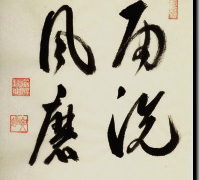 雨洗
風磨